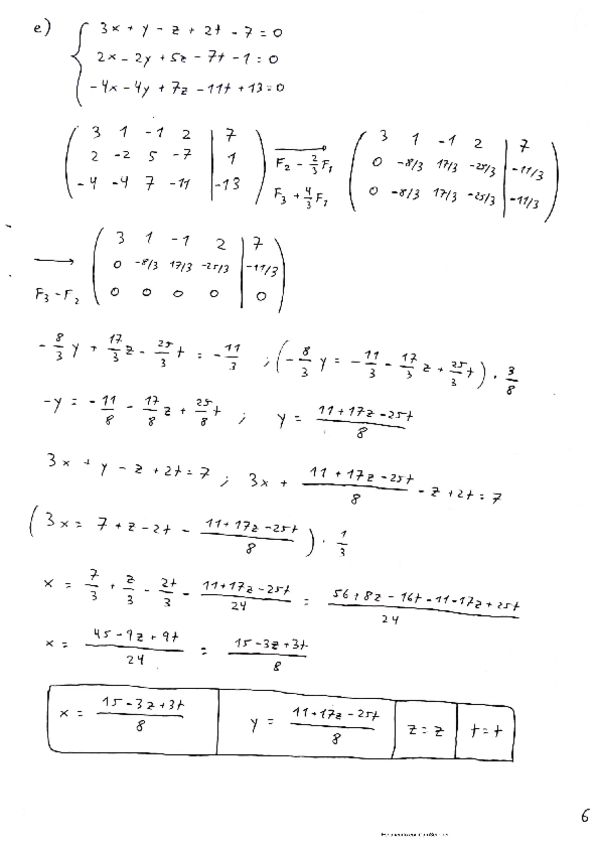 e) { 3x + y - z + 2t - 7 = 0
2x - 2y + 5z - 7t - 1 = 0
-4x - 4y + 7z - 11t + 13 = 0
( 3 1 -1 2 | 7 ) ( 3 1 -1 2 | 7 )
( 2 -2 5 -7 | 1 ) → F₂ - 2/3 F₁ ( 0 -8/3 17/3 -25/3 | -11/3 )
( -4 -4 7 -11 | -13 ) F₃ + 4/3 F₁ ( 0 -8/3 17/3 -25/3 | -11/3 )
( 3 1 -1 2 | 7 )
→ ( 0 -8/3 17/3 -25/3 | -11/3 )
F₃ - F₂ ( 0 0 0 0 | 0 )
- 8/3 y + 17/3 z - 25/3 t = - 11/3 ; ( - 8/3 y = - 11/3 - 17/3 z + 25/3 t ) · 3/8
-y = - 11/8 - 17/8 z + 25/8 t ; y = (11 + 17z - 25t)/8
3x + y - z + 2t = 7 ; 3x + (11 + 17z - 25t)/8 - z + 2t = 7
( 3x = 7 + z - 2t - (11 + 17z - 25t)/8 ) · 1/3
x = 7/3 + z/3 - 2t/3 - (11 + 17z - 25t)/24 = (56 + 8z - 16t - 11 - 17z + 25t)/24
x = (45 - 9z + 9t)/24 = (15 - 3z + 3t)/8
x = (15 - 3z + 3t)/8 y = (11 + 17z - 25t)/8 z = z t = t
6